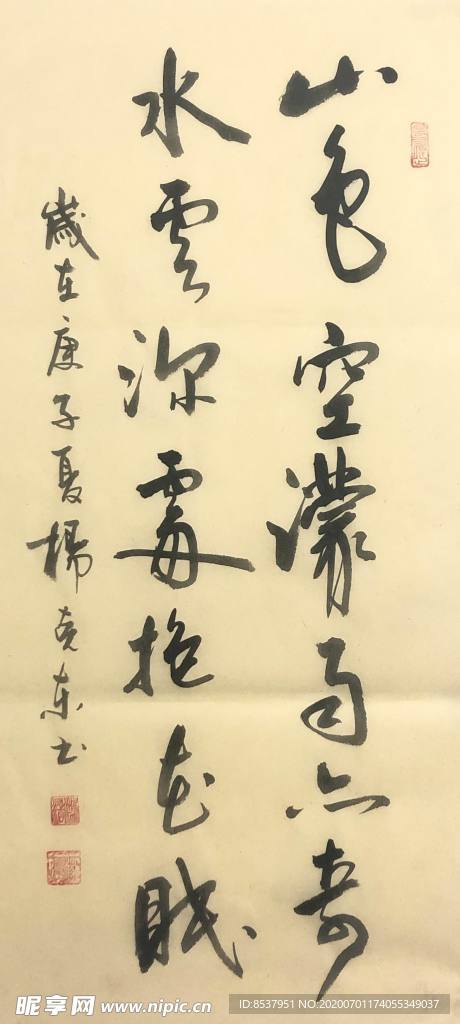 山色空濛雨亦奇
水雲深處抱花眠
歲在庚子夏楊克东书
昵享网 www.nipic.cn
ID:8537951 NO:20200701174055349037